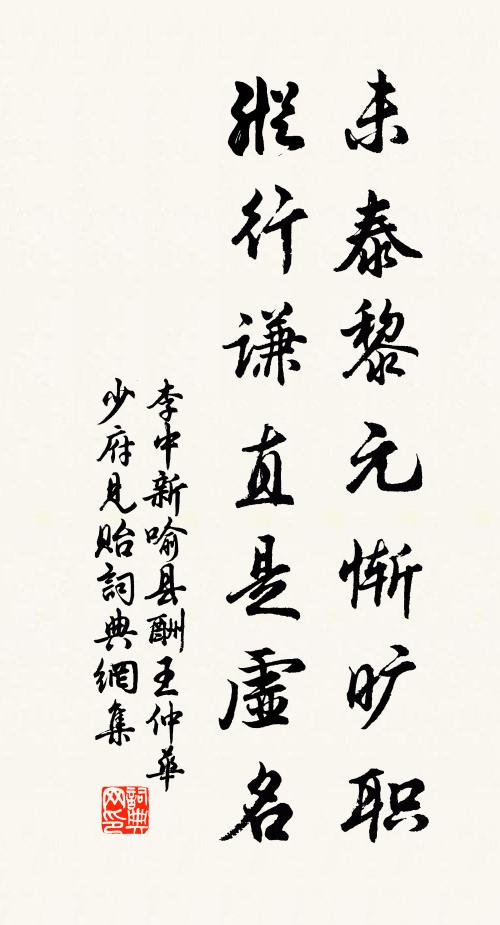 未泰黎元惭旷职
纵行谦直是虚名
李中新喻县酬王仲华
少府见贻詞典網集
詞典网印